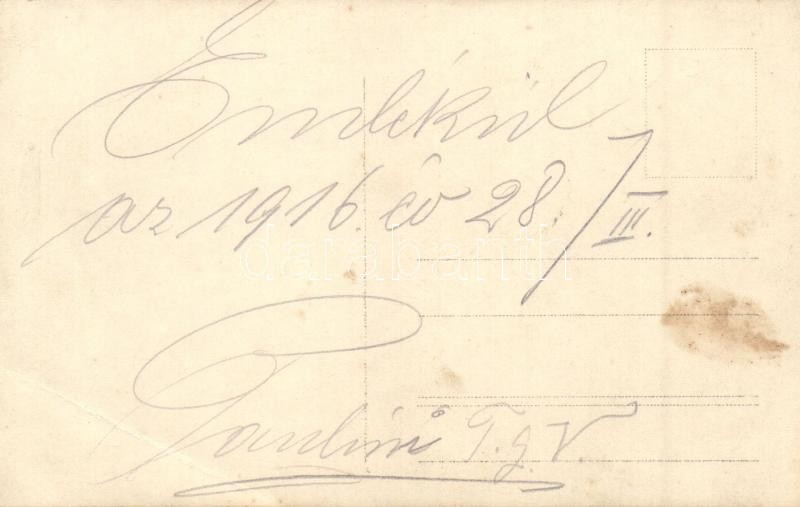 Emlékül
az 1916. év 28./III.
Paulini T.g.V.
darabanth